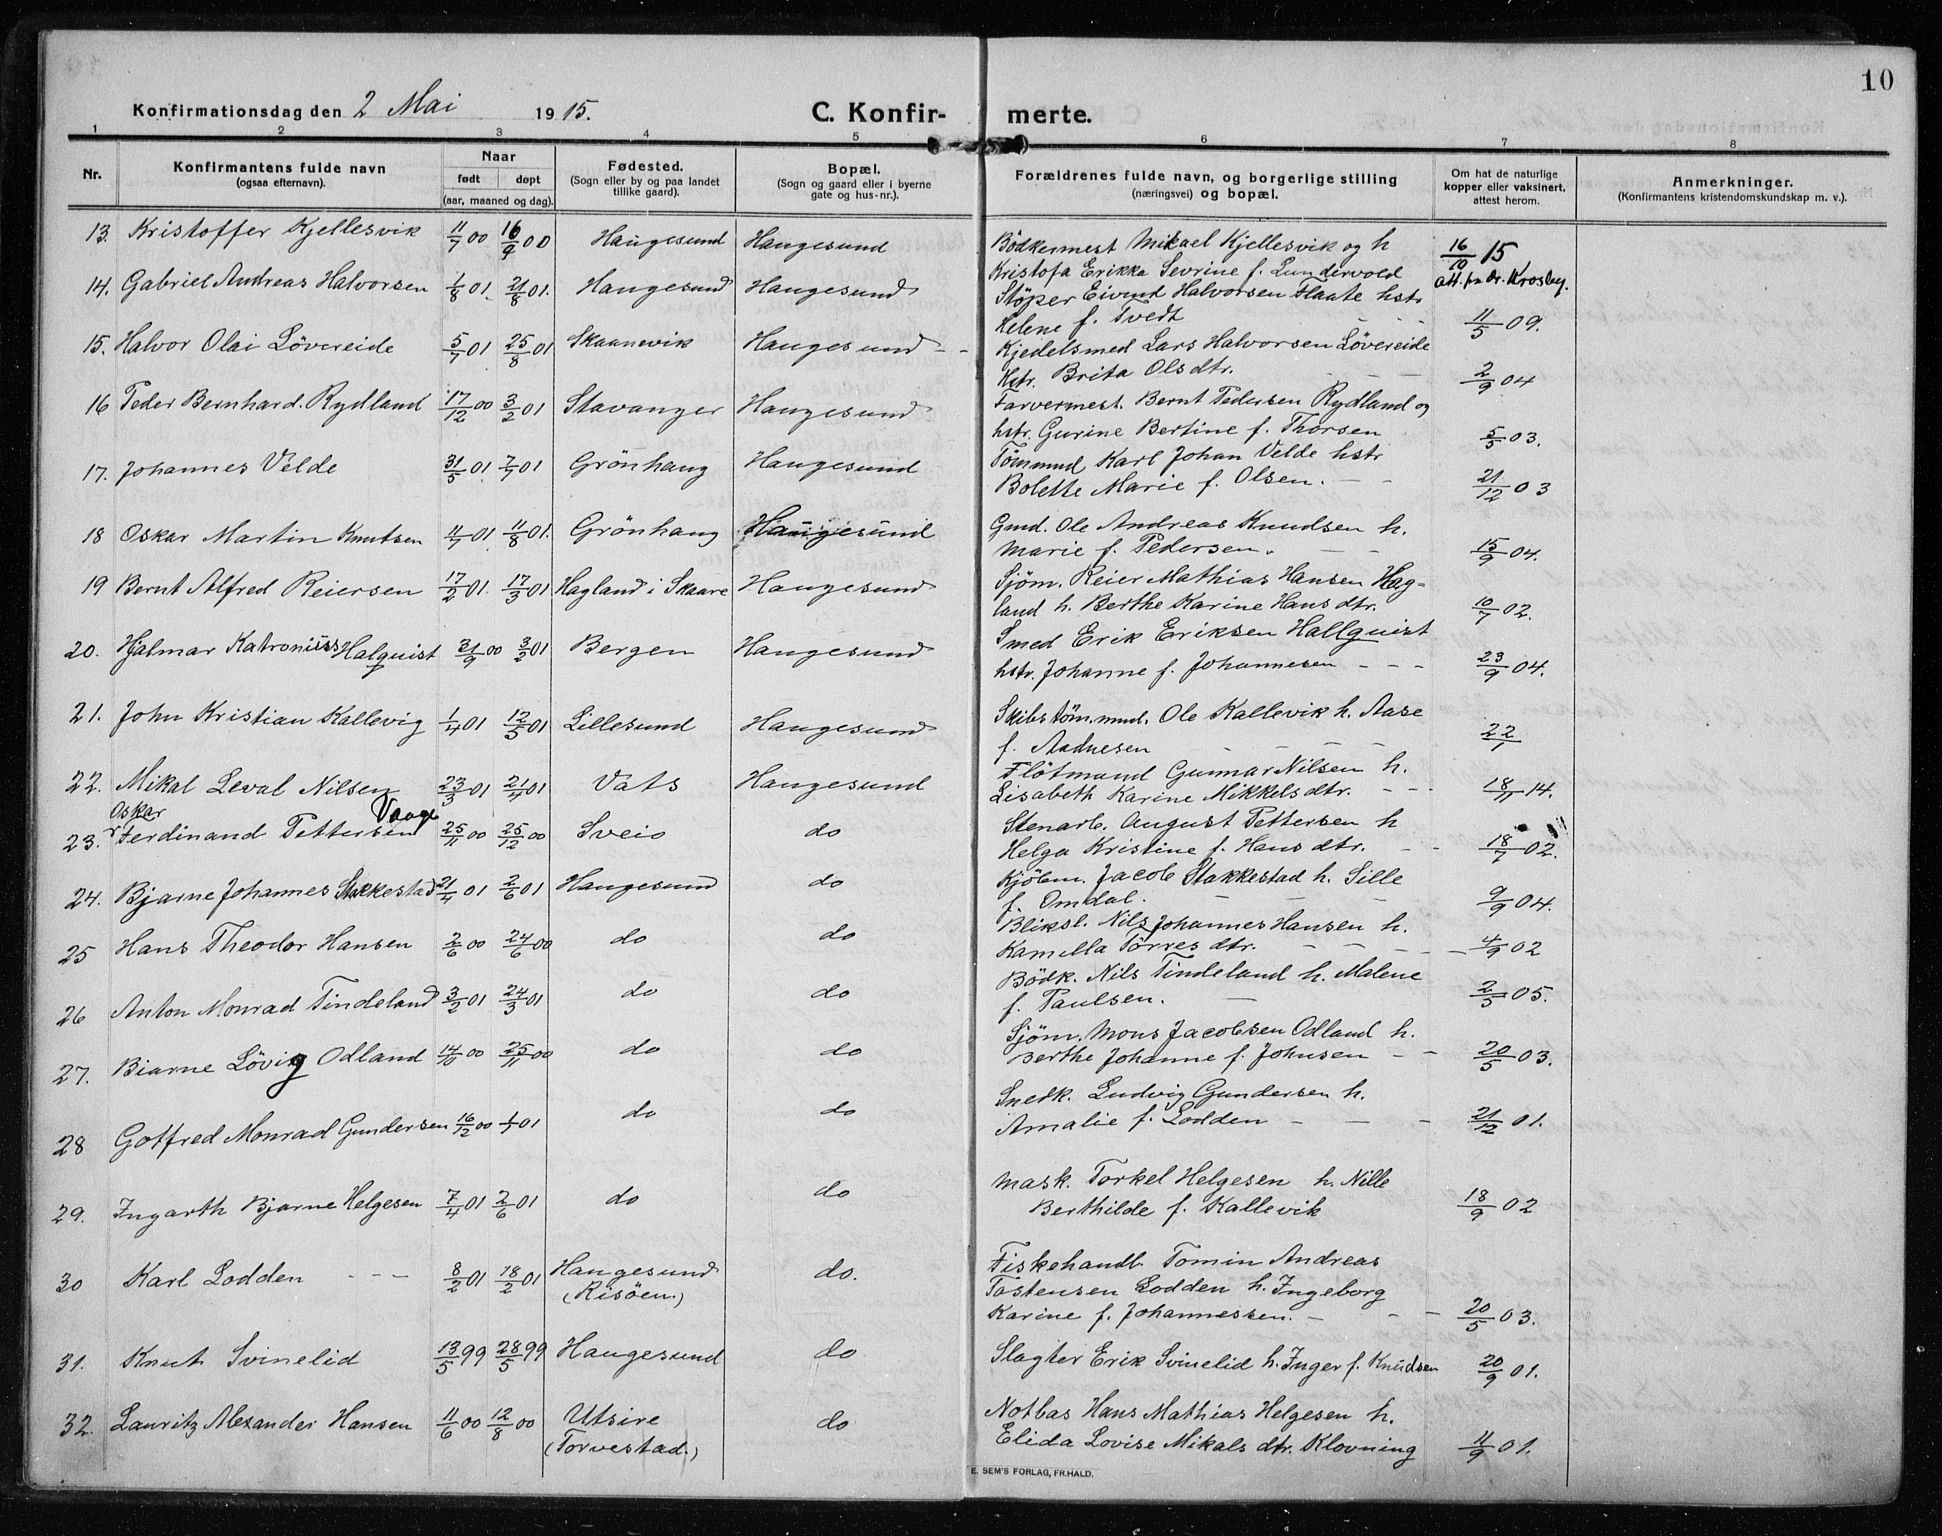 10
Konfirmationsdag den 2 Mai 1915.
C. Konfirmerte.
1 2 3 4 5 6 7 8
Nr.
Konfirmantens fulde navn
(ogsaa efternavn).
Naar
født døpt
(aar, maaned og dag).
Fødested.
(Sogn eller by og paa landet
tillike gaard).
Bopæl.
(Sogn og gaard eller i byerne
gate og hus-nr.).
Forældrenes fulde navn, og borgerlige stilling
(næringsvei) og bopæl.
Om hat de naturlige
kopper eller vaksinert,
attest herom.
Anmerkninger.
(Konfirmantens kristendomskundskap m. v.).
13. Kristoffer Kjellesvik 11/7 00 16/9 00 Haugesund Haugesund Bödkermest Mikael Kjellesvik og h 16/10 15
Kristofa Erikka Sevrine f. Lundervold att. fra dr. Krosby.
14. Gabriel Andreas Halvorsen 1/8 01. 21/8 01. Haugesund Haugesund Støper Eivind Halvorsen Flaate hstr
Helene f. Tvedt 11/5 09.
15. Halvor Olai Lövereide 5/7 01 25/8 01 Skaanevik Haugesund Kjedelsmed Lars Halvorsen Lövereide
Hstr. Brita Olsdtr. 2/9 04
16 Peder Bernhard. Rydland 17/12 00 3/2 01 Stavanger Haugesund Farvermest. Bernt Pedersen Rydland og
hstr. Gurine Bertine f. Thorsen 5/5 03.
17. Johannes Velde 31/5 01. 7/7 01 Grönhaug Haugesund Tömmmd Karl Johan Velde hstr
Bolette Marie f. Olsen. 21/12 03
18 Oskar Martin Knutsen 11/7 01 11/8 01. Grönhaug Haugesund Gmd. Ole Andreas Knudsen h.
Marie f. Pedersen. 15/9 04.
19 Bernt Alfred Reiersen 17/2 01. 17/3 01 Hagland i Skaare Haugesund Sjöm. Reier Mathias Hansen Hag-
land h. Berthe Karine Hansdtr. 10/7 02.
20. Hjalmar Katronius Halquist 31/9 00 3/2 01 Bergen Haugesund Smed Erik Eriksen Hallquist
hstr. Johanne f. Johannesen 23/9 04.
21. John Kristian Kallevig 1/4 01 12/5 01 Lillesund Haugesund Skibstöm.mnd. Ole Kallevik h. Aase
f. Aadnesen 22/1
22. Mikal Leval Nilsen 23/3 01 21/4 01 Vats Haugesund Flötmand Gunnar Nilsen h.
Lisabeth Karine Mikkelsdtr. 18/11 14.
Oskar Vaage
23. Ferdinand Pettersen 25/11 00 25/12 00 Sveio do Stenarb. August Pettersen h
Helga Kristine f. Hansdtr. 18/7 02.
24. Bjarne Johannes Stakkestad 21/4 01 2/6 01 Haugesund do Kjölem. Jacob Stakkestad h. Sille
f. Omdal. 9/9 04.
25 Hans Theodor Hansen 2/6 00 24/6 00 do do Bliksl. Nils Johannes Hansen h.
Kamilla Torresdtr. 4/9 02
26 Anton Monrad Tindeland 3/2 01 24/3 01 do do Bödk. Nils Tindeland h. Malene
f. Paulsen. 2/5 05.
27. Biarne Lövig Odland 14/10 00 25/11 00 do do Sjöm. Mons Jacobsen Odland h.
Berthe Johanne f. Johnsen 20/5 03.
28 Gotfred Monrad Gundersen 16/12 00 1/1 01 do do Snedk. Ludvig Gundersen h.
Amalie f. Lodden 21/12 01.
29. Ingarth Bjarne Helgesen 7/4 01 2/6 01 do do Mask. Torkel Helgesen h. Nille
Berthilde f. Kallevik 18/9 02
30 Karl Lodden 8/2 01 18/2 01 Haugesund do. Fiskehandl. Tomin Andreas
(Risöen.) Tostensen Lodden h. Ingeborg
Karine f. Johannessen. 20/5 03.
31. Knut Svinelid 13/5 99 28/5 99 Haugesund do Slagter Erik Svinelid h. Inger f. Knudsen 20/9 01.
32. Lauritz Alexander Hansen 11/6 00 12/8 00 Utsire do Notbas Hans Mathias Helgesen h.
(Torvestad.) Elida Lovise Mikalsdtr. Klovning 11/9 01.
E. SEM'S FORLAG, FR.HALD.